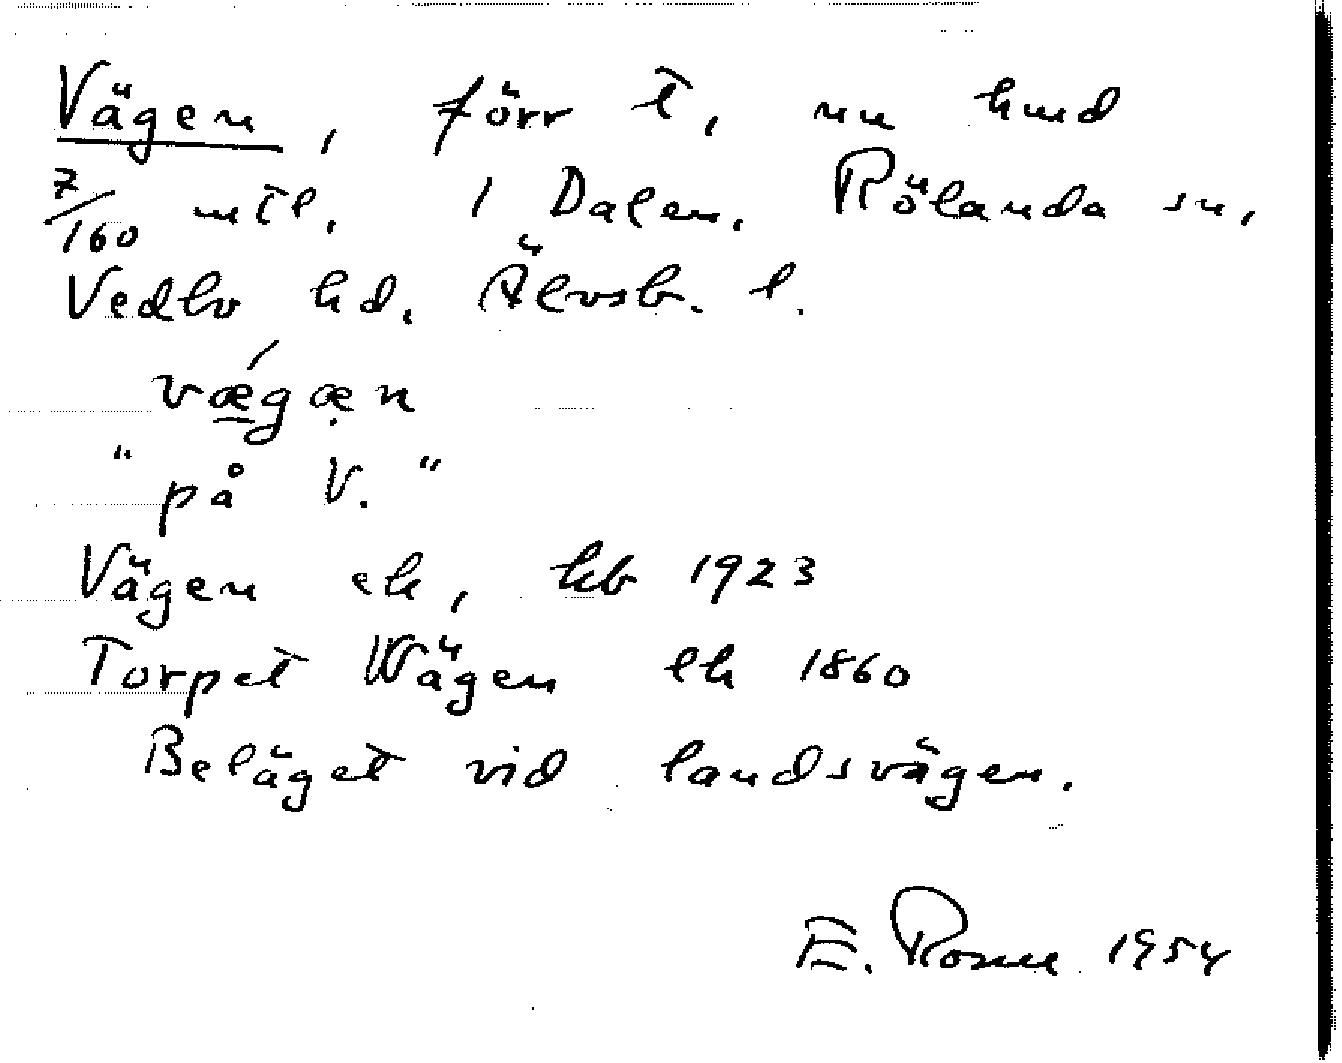 Vägen, förr t, nu hmd
7/160 mtl. i Dalen. Rölanda sn,
Vedbo hd. Älvsb. l.
vǽgæ̣n
"på V."
Vägen ek, kb 1923
Torpet Wägen lk 1860
Beläget vid landsvägen.
E. Rosne 1954